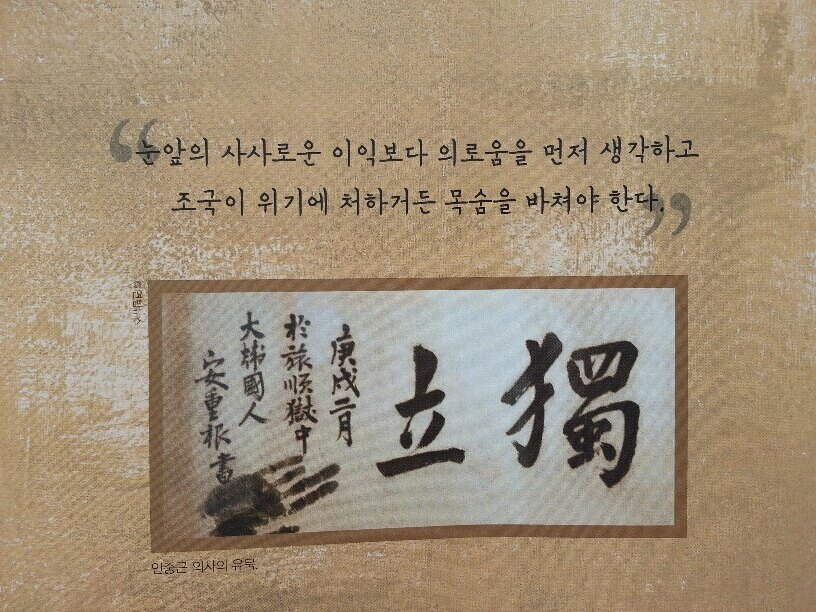 “눈앞의 사사로운 이익보다 의로움을 먼저 생각하고
조국이 위기에 처하거든 목숨을 바쳐야 한다.”
獨立
庚戌二月
於旅順獄中
大韓國人
安重根書
안중근 의사의 유묵.